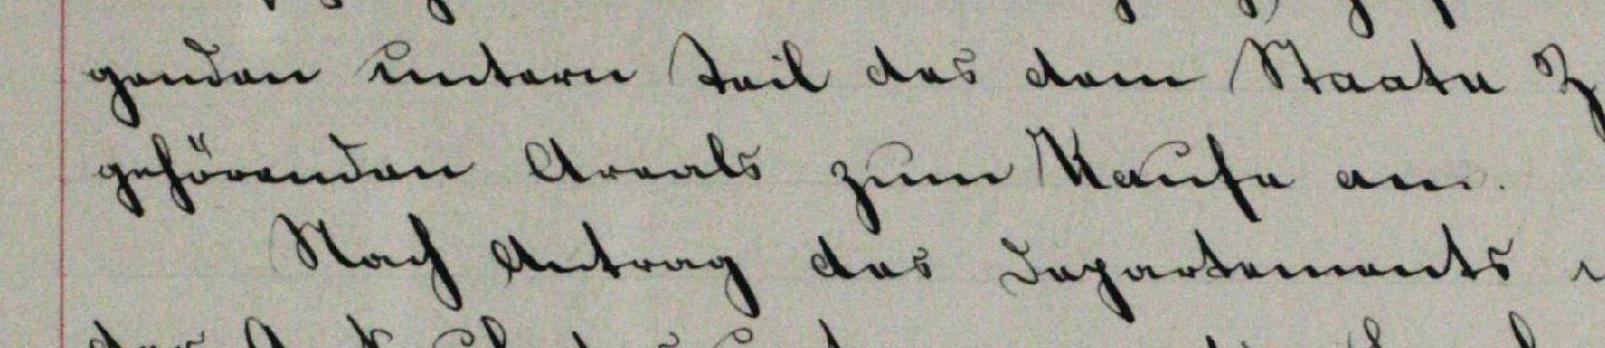 genden untern Teil des dem Staate
gehörenden Areals zum Kaufe an.
Nach Antrag des Departements